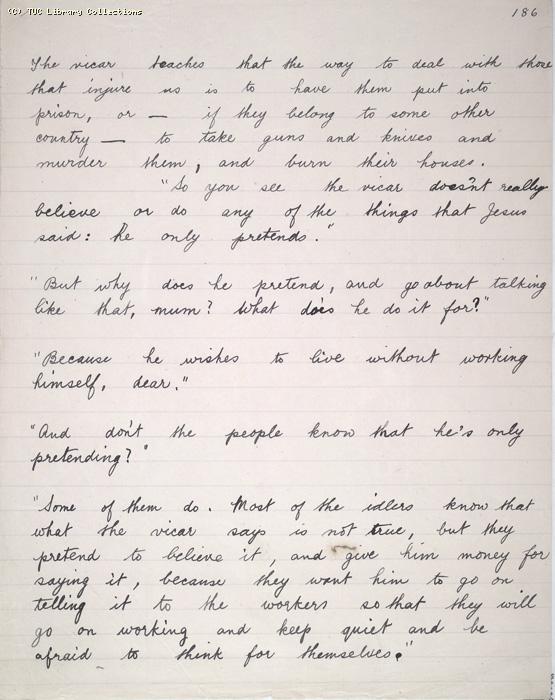 (C) TUC Library Collections
186
The vicar teaches that the way to deal with those
that injure us is to have them put into
prison, or — if they belong to some other
country — to take guns and knives and
murder them, and burn their houses.
"So you see the vicar doesn't really
believe or do any of the things that Jesus
said: he only pretends."
"But why does he pretend, and go about talking
like that, mum? What does he do it for?"
"Because he wishes to live without working
himself, dear."
"And don't the people know that he's only
pretending?"
"Some of them do. Most of the idlers know that
what the vicar says is not true, but they
pretend to believe it, and give him money for
saying it, because they want him to go on
telling it to the workers so that they will
go on working and keep quiet and be
afraid to think for themselves."